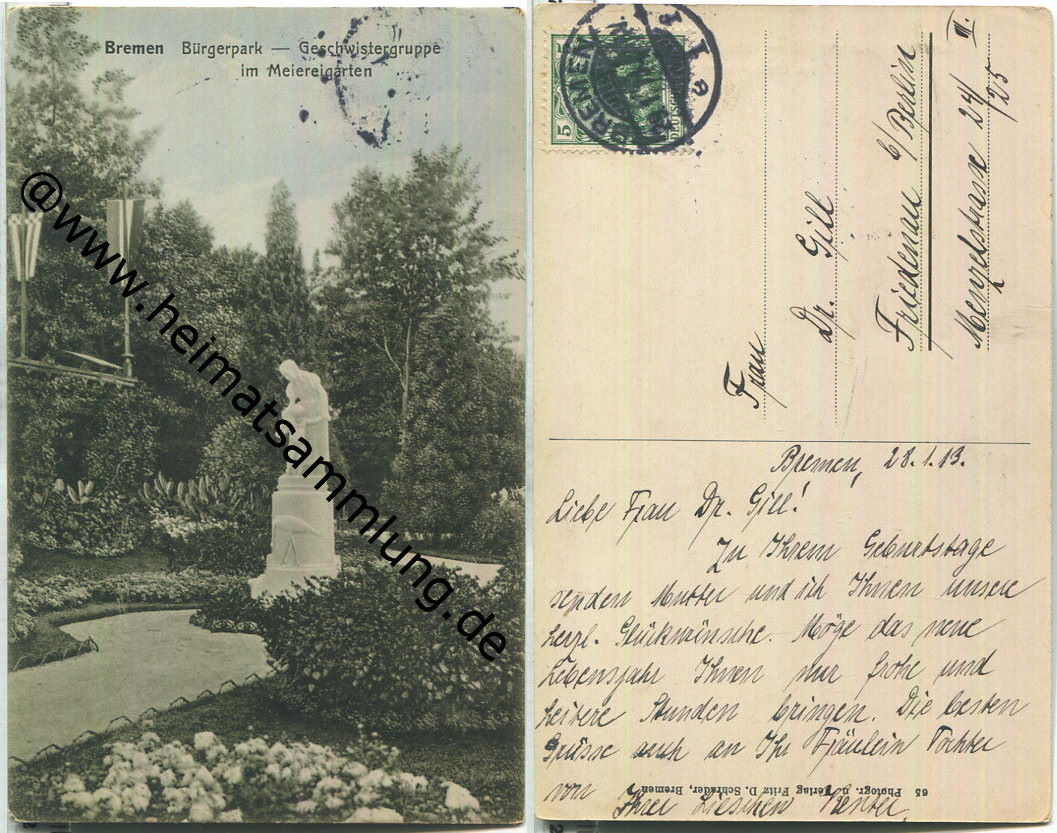 Bremen Bürgerpark — Geschwistergruppe
im Meiereigarten
@www.heimatsammlung.de
5
BREMEN
Frau
Dr. Gill
Friedenau b/Berlin
Menzelstrasse 24/25
III.
Bremen, 28.1.13.
Liebe Frau Dr. Gill!
Zu Ihrem Geburtstage
senden Mutter und ich Ihnen unsere
herzl. Glückwünsche. Möge das neue
Lebensjahr Ihnen nur frohe und
heitere Stunden bringen. Die besten
Grüsse auch an Ihr Fräulein Tochter
von
Ihrer Lieschen
65 Photogr. u. Verlag Fritz D. Schrader, Bremen